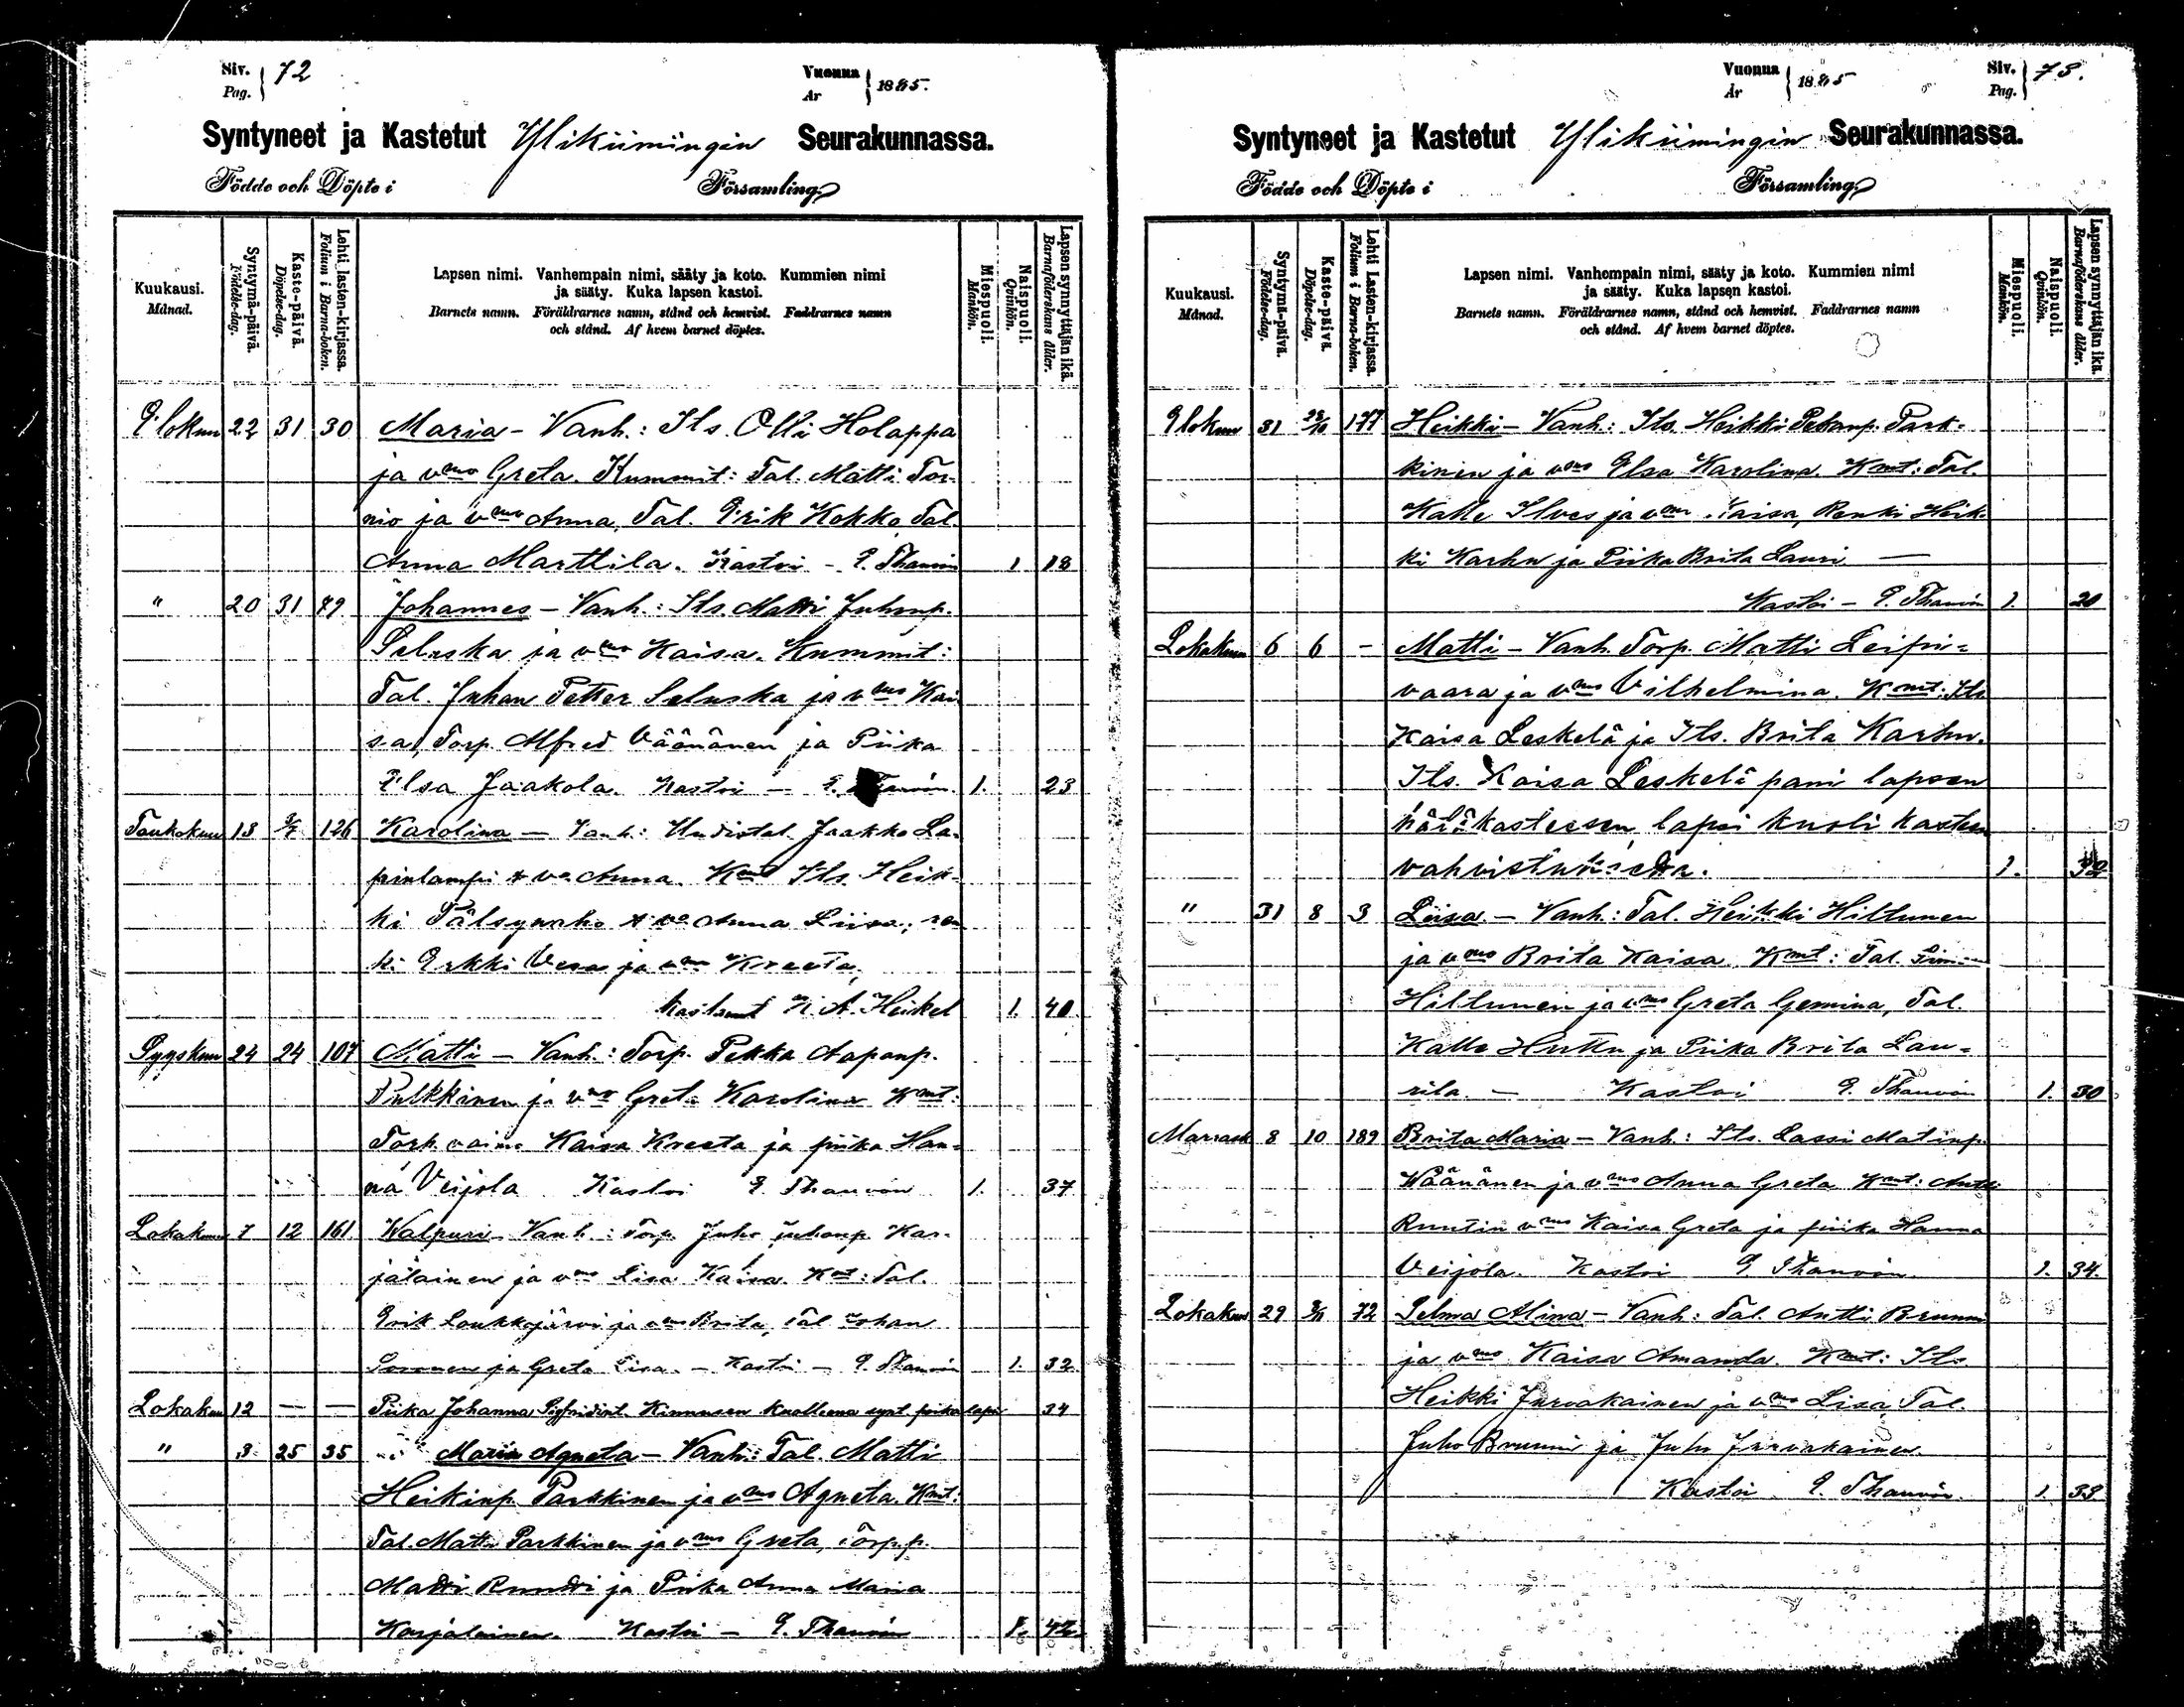 Siv. Pag. 72
Vuonna År 1885.
Syntyneet ja Kastetut Ylikiimingin Seurakunnassa.
Födde och Döpte i Församling.
Kuukausi. Månad.
Syntymä-päivä. Födelse-dag.
Kaste-päivä. Döpelse-dag.
Lehti lasten-kirjassa. Folium i Barna-boken.
Lapsen nimi. Vanhempain nimi, sääty ja koto. Kummien nimi
ja sääty. Kuka lapsen kastoi.
Barnets namn. Föräldrarnes namn, stånd och hemvist. Faddrarnes namn
och stånd. Af hvem barnet döptes.
Miespuoli. Mankön.
Naispuoli. Qvinkön.
Lapsen synnyttäjän ikä. Barnaföderskans ålder.
Elokuu 22 31 30 Maria - Vanh.: Its. Olli Holappa
ja vmo Greta. Kummit: Tal. Matti Tor-
nio ja vmo Anna, Tal. Erik Kokko, Tal.
Anna Marttila. Kastoi - E. Thauvón 1 18
" 20 31 79 Johannes - Vanh.: Its. Matti Juhonp.
Seluska ja vmo Kaisa. Kummit:
Tal. Juhan Petter Seluska ja vmo Kai
sa, Torp. Alfred Väänänen ja Piika
Elsa Jaakola. Kastoi - E. Thauvón. 1. 23
Toukokuu 13 126 Karolina - Vanh: Uudistal. Jaakko La-
pinlampi & va Anna. Kmt Its. Heik-
ki Pälsynaho & va Anna Liisa; ren
ki Erkki Vesa ja vmo Kreeta,
Kastanut K. A. Heikel 1. 40
Syyskuu 24 24 107 Matti - Vanh.: Torp. Pekka Aaponp.
Pulkkinen ja vmo Greta Karolina Kmt:
Torp. vaimo Kaisa Kreeta ja piika Han-
na Veijola Kastoi E. Thauvón 1. 37
Lokakuu 7 12 161 Walpuri - Vanh.: Torp. Juho Juhonp. Kar-
jalainen ja vmo Lisa Kaisa. Kmt: Tal.
Erik Loukkojärvi ja vmo Brita, Tal Johan
Soronen ja Greta Lisa. - Kastoi - E. Thauvón 1. 32
Lokakuu 12 — — Piika Johanna Kinnusen kuolleena synt. piika lapsi 34
" 3 25 35 Maria Agneta - Vanh.: Tal. Matti
Heikinp. Parkkinen ja vmo Agneta. Kmt:
Tal. Matti Parkkinen ja vmo Greta, Torp.p.
Matti Ruutti ja Piika Anna Maria
Karjalainen. Kastoi - E. Thauvón 1. 42
Vuonna År 1885
Siv. Pag. 73.
Syntyneet ja Kastetut Ylikiimingin Seurakunnassa.
Födde och Döpte i Församling.
Kuukausi. Månad.
Syntymä-päivä. Födelse-dag.
Kaste-päivä. Döpelse-dag.
Lehti Lasten-kirjassa. Folium i Barna-boken.
Lapsen nimi. Vanhempain nimi, sääty ja koto. Kummien nimi
ja sääty. Kuka lapsen kastoi.
Barnets namn. Föräldrarnes namn, stånd och hemvist. Faddrarnes namn
och stånd. Af hvem barnet döptes.
Miespuoli. Mankön.
Naispuoli. Qvinkön.
Lapsen synnyttäjän ikä. Barnaföderskans ålder.
Elokuu 31 177 Heikki - Vanh: Its. Heikki Pekanp. Park-
kinen ja vmo Elsa Karolina. Kmt: Tal.
Kalle Ilves ja vmo Kaisa, Renki Heik-
ki Karhu ja Piika Brita Lauri —
Kastoi - E. Thauvón 1. 20
Lokakuu 6 6 - Matti - Vanh. Torp. Matti Leipi-
vaara ja vmo Vilhelmina. Kmt: Its
Kaisa Leskelä ja Its. Brita Karhu.
Its. Kaisa Leskelä pani lapsen
hätäkasteesen, lapsi kuoli kasteen
vahvistuksetta. 1. 32
" 31 8 3 Liisa. - Vanh.: Tal. Heikki Hiltunen
ja vmo Brita Kaisa. Kmt: Tal.
Hiltunen ja vmo Greta Gemina, Tal.
Kalle Huttu ja Piika Brita Lau-
rila. - Kastoi E. Thauvón 1. 30
Marrask 8 10 189 Brita Maria - Vanh: Its. Lassi Matinp.
Wäänänen ja vmo Anna Greta Kmt: Antti
Ruutin vmo Kaisa Greta ja piika Hanna
Veijola. Kastoi E. Thauvón. 1. 34.
Lokakuu 29 72 Selma Alina - Vanh: Tal. Antti Bruuni
ja vmo Kaisa Amanda. Kmt: Its
Heikki Jurvakainen ja vmo Lisa, Tal.
Juho Bruuni ja Juho Jurvakainen.
Kastoi E. Thauvón. 1. 33